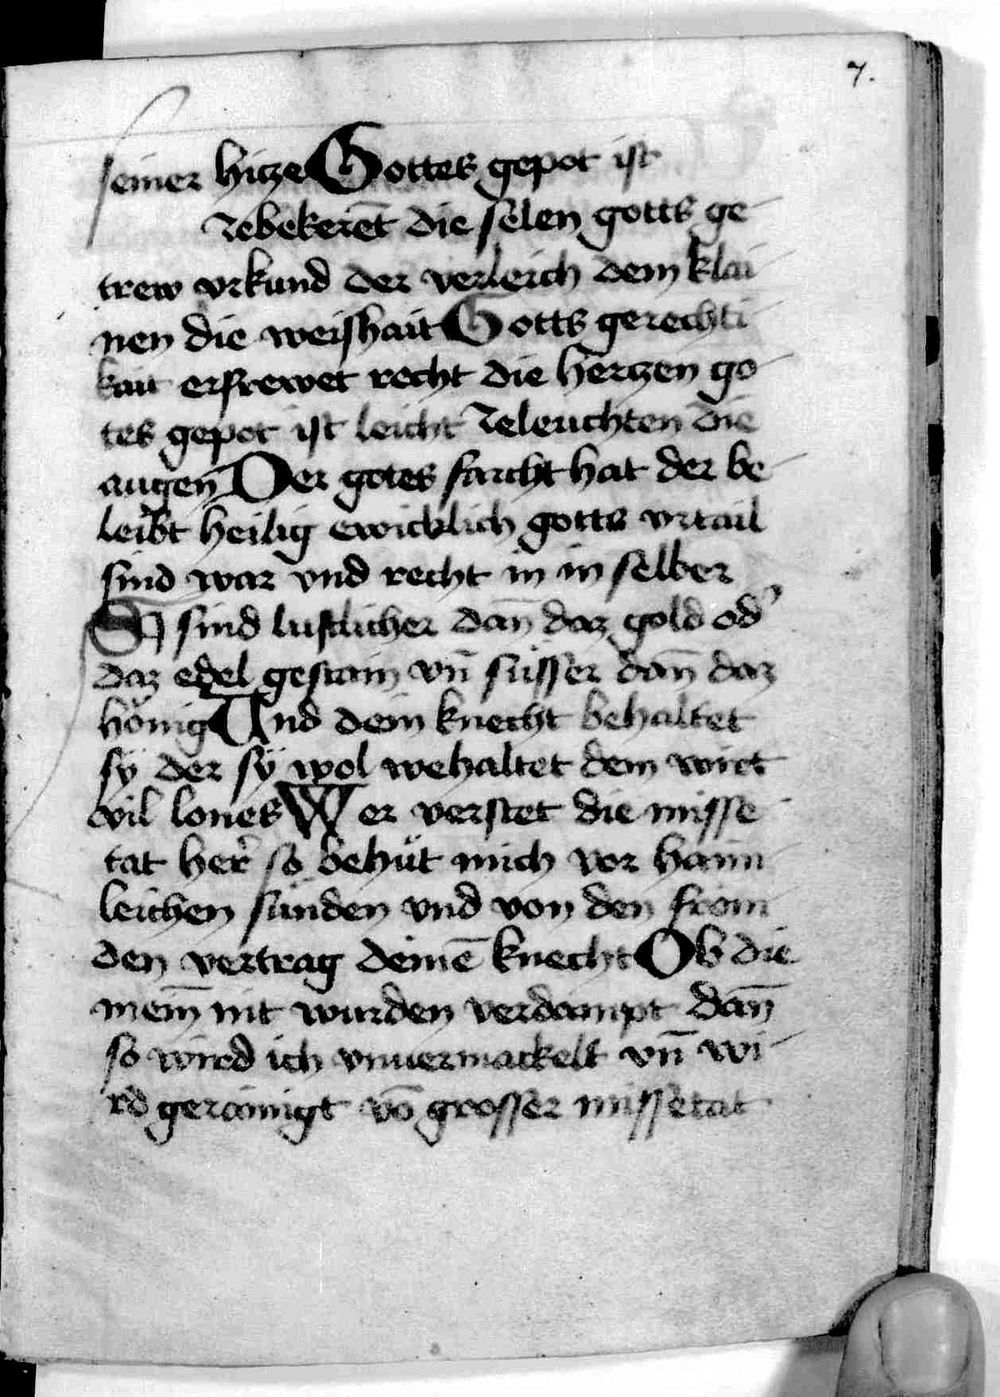 7.
seiner hitze Gottes gepot ist
Rebekeret̄ die selen gotts ge-
trew vrkund der verleich dem klai-
nen die weishait Gotts gerechti-
kait erfrewet recht die hertzen go-
tes gepot ist leicht Releuchten die
augen Der gotes farcht hat der be-
leibt heilig ewicklich gotts vrtail
sind war vnd recht in in selber
Sy sind lustlicher dan̄ daz gold od'
daz edel gestain vn̄ süsser dan̄ daz
hönig Und dein knecht behaltet
sÿ der sÿ wol wehaltet dem wirt
vil lones Wer verstet die misse-
tat her̄ so behüt mich vor haim-
leichen sünden vnd von den fröm-
den vertrag deinē knecht Ob die
mein̄ nit wurden verdampt dan̄
so wird ich vnuermackelt vn̄ wi-
rd gerainigt vō grosser missetat